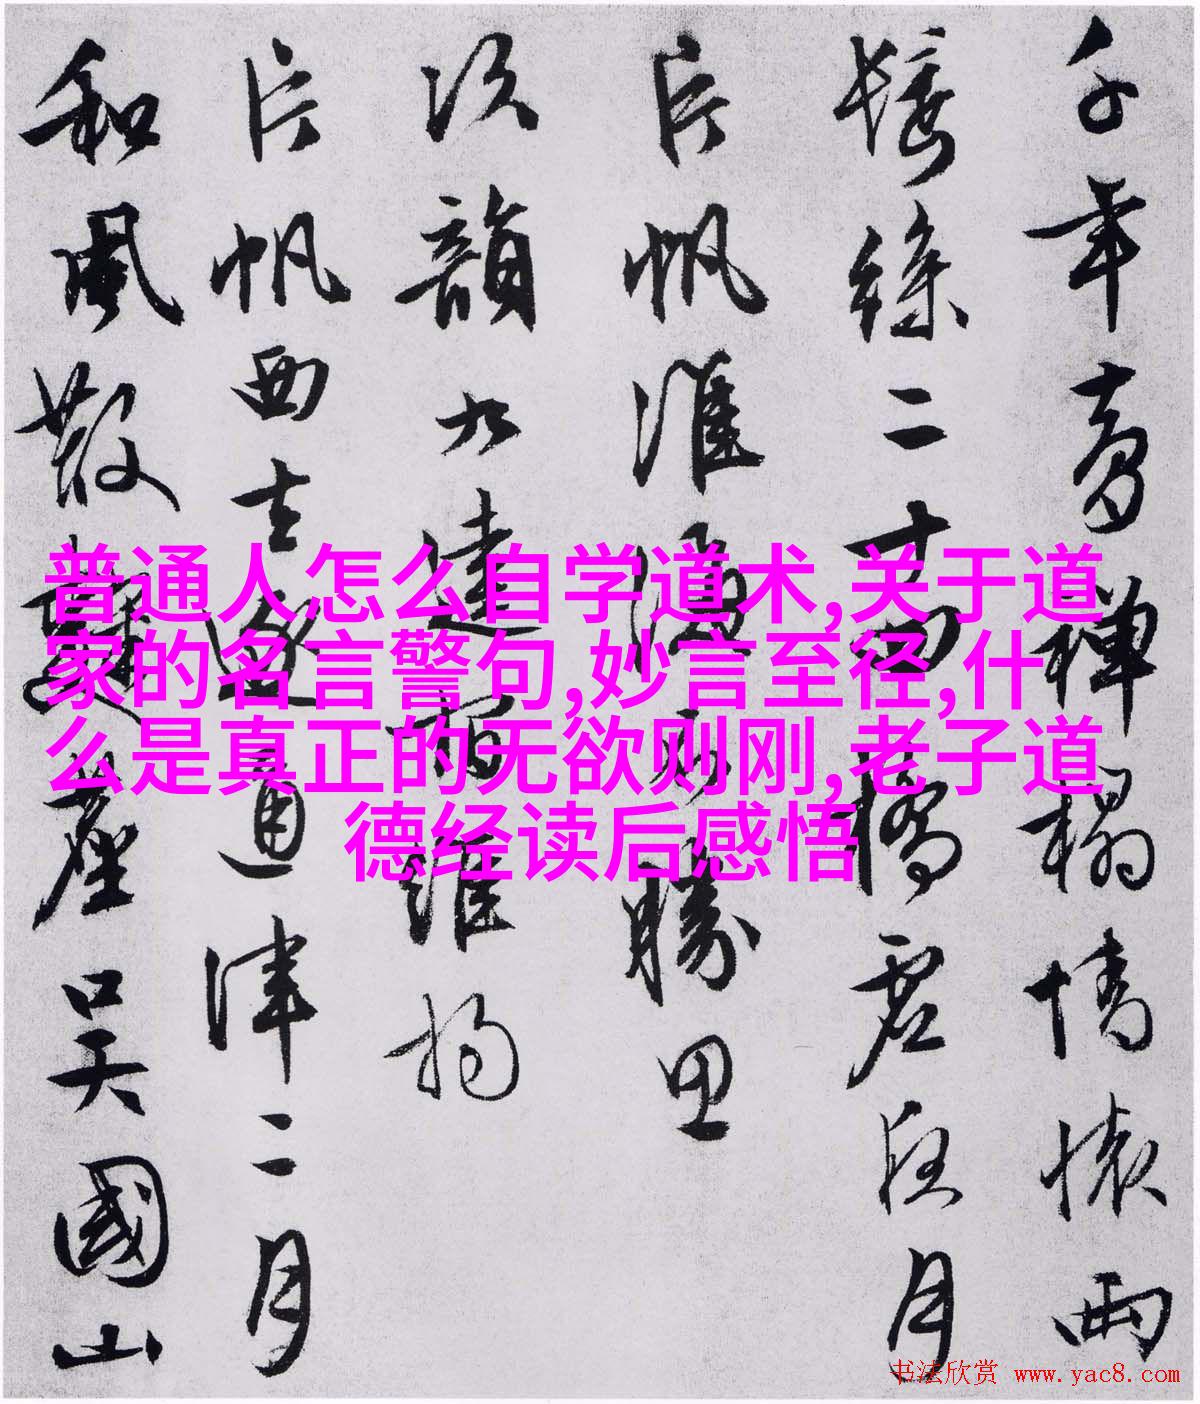 千年禪榻情懷兩
鬢絲二十四橋虛夜月
片帆淮海勝思
次韻維揚
片帆西去遂通津二月
和風散麴塵吳國山
普通人怎么自学道术,关于道
家的名言警句,妙言至径,什
么是真正的无欲则刚,老子道
德经读后感悟
书法欣赏 www.yac8.com